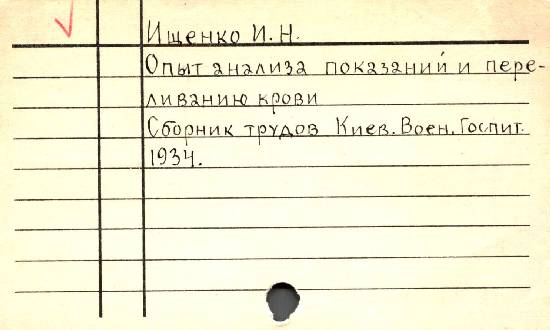 Ищенко И. Н.
Опыт анализа показаний и пере-
ливанию крови
Сборник трудов Киев. Воен. Госпит.
1934.